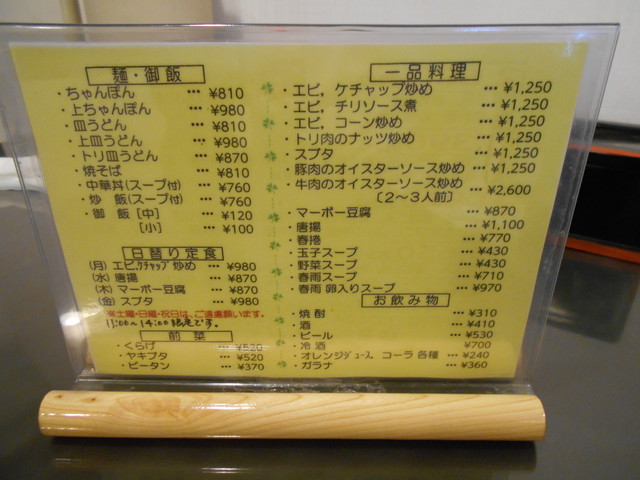 麺・御飯
・ちゃんぽん … ¥810
・上ちゃんぽん … ¥980
・皿うどん … ¥810
・上皿うどん … ¥980
・トリ皿うどん … ¥870
・焼そば … ¥810
・中華丼(スープ付) … ¥760
・炒 飯(スープ付) … ¥760
・御 飯 [中] … ¥120
[小] … ¥100
日替り定食
(月) エビ,ケチャップ 炒め … ¥980
(水) 唐揚 … ¥870
(木) マーボー豆腐 … ¥870
(金) スブタ … ¥980
※土曜・日曜・祝日は、ご遠慮願います。
11:00～14:00
前菜
・くらげ … ¥520
・ヤキブタ … ¥520
・ピータン … ¥370
一品料理
・エビ，ケチャップ炒め … ¥1,250
・エビ，チリソース煮 … ¥1,250
・エビ，コーン炒め … ¥1,250
・トリ肉のナッツ炒め … ¥1,250
・スブタ … ¥1,250
・豚肉のオイスターソース炒め … ¥1,250
・牛肉のオイスターソース炒め … ¥2,600
〔2～3人前〕
・マーボー豆腐 … ¥870
・唐揚 … ¥1,100
・春捲 … ¥770
・玉子スープ … ¥430
・野菜スープ … ¥430
・春雨スープ … ¥710
・春雨 卵入りスープ … ¥970
お飲み物
・焼酎 … ¥310
・酒 … ¥410
・ビール … ¥530
・冷酒 ¥700
・オレンジジュース。コーラ 各種 … ¥240
・ガラナ … ¥360